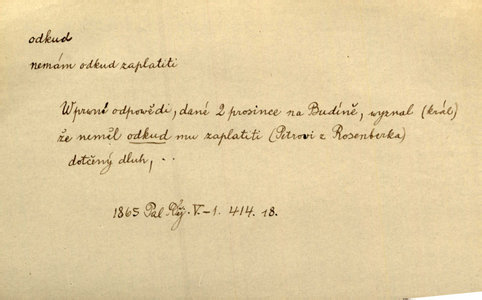 odkud
nemám odkud zaplatiti
W prwní odpovědi, dané 2 prosince na Budíně, wyznal (král)
že neměl odkud mu zaplatiti (Petrovi z Rosenberka)
dotčený dluh, ..
1865 Pal. Děj. V-1. 414. 18.